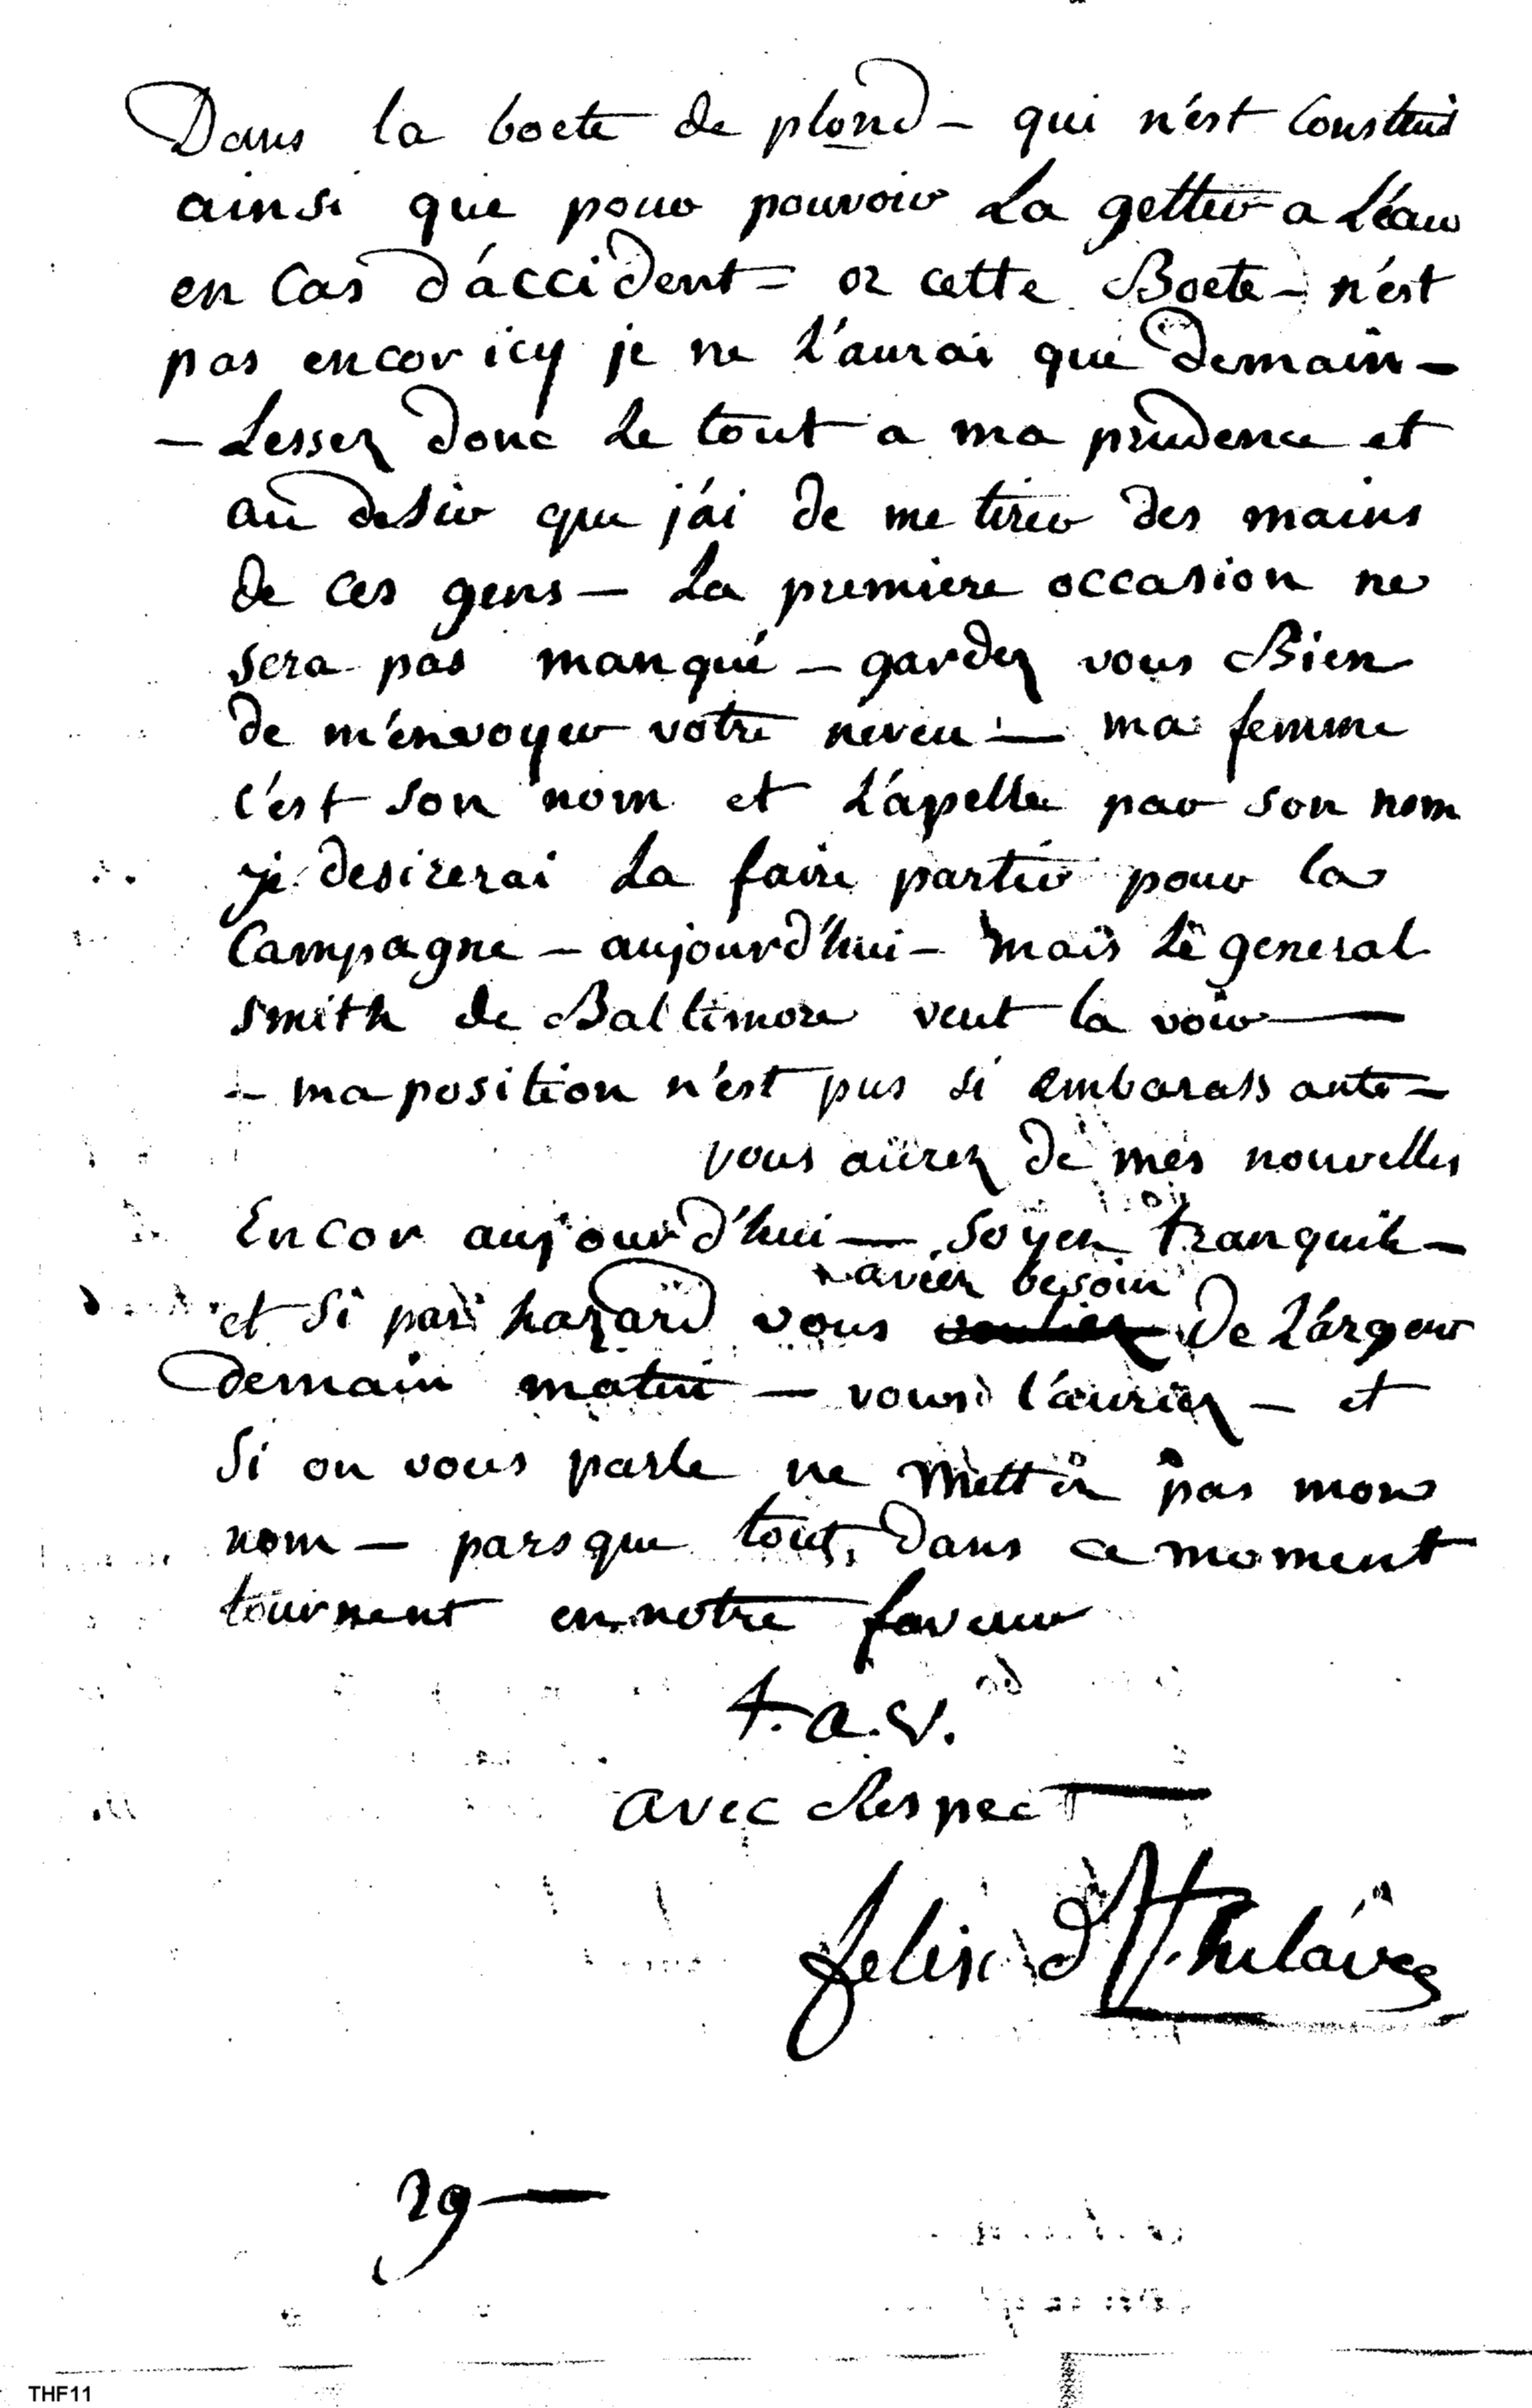 Dans la boete de plond - qui n'est Construit
ainsi que pour pouvoir La getter a L'éau
en Cas d'accident = or cette Boete - n'est
pas encor icy je ne L'aurai que demain -
- Lessez donc Le tout a ma prudence et
au desir que j'ai de me tirer des mains
de ces gens - La premiere occasion ne
sera pas manqué - gardez vous Bien
de m'envoyer votre neveu - ma femme
c'est son nom et L'apelle par son nom
je desirerai La faire partir pour la
Campagne - aujourd'hui - mais Le general
Smith de Baltimore veut la voir -
- ma position n'est pas si embarassante -
vous aurez de mes nouvelles
Encor aujourd'hui - soyez tranquile -
aviez besoin
et Si par hazard vous voulier de L'argent
demain matin - vous l'auriez - et
Si on vous parle ne mettez pas mon
nom - parsque tout dans ce moment
tournent en notre faveur
t. a. v.
avec Respect
felix d' St. hilaire
29 -
THF11